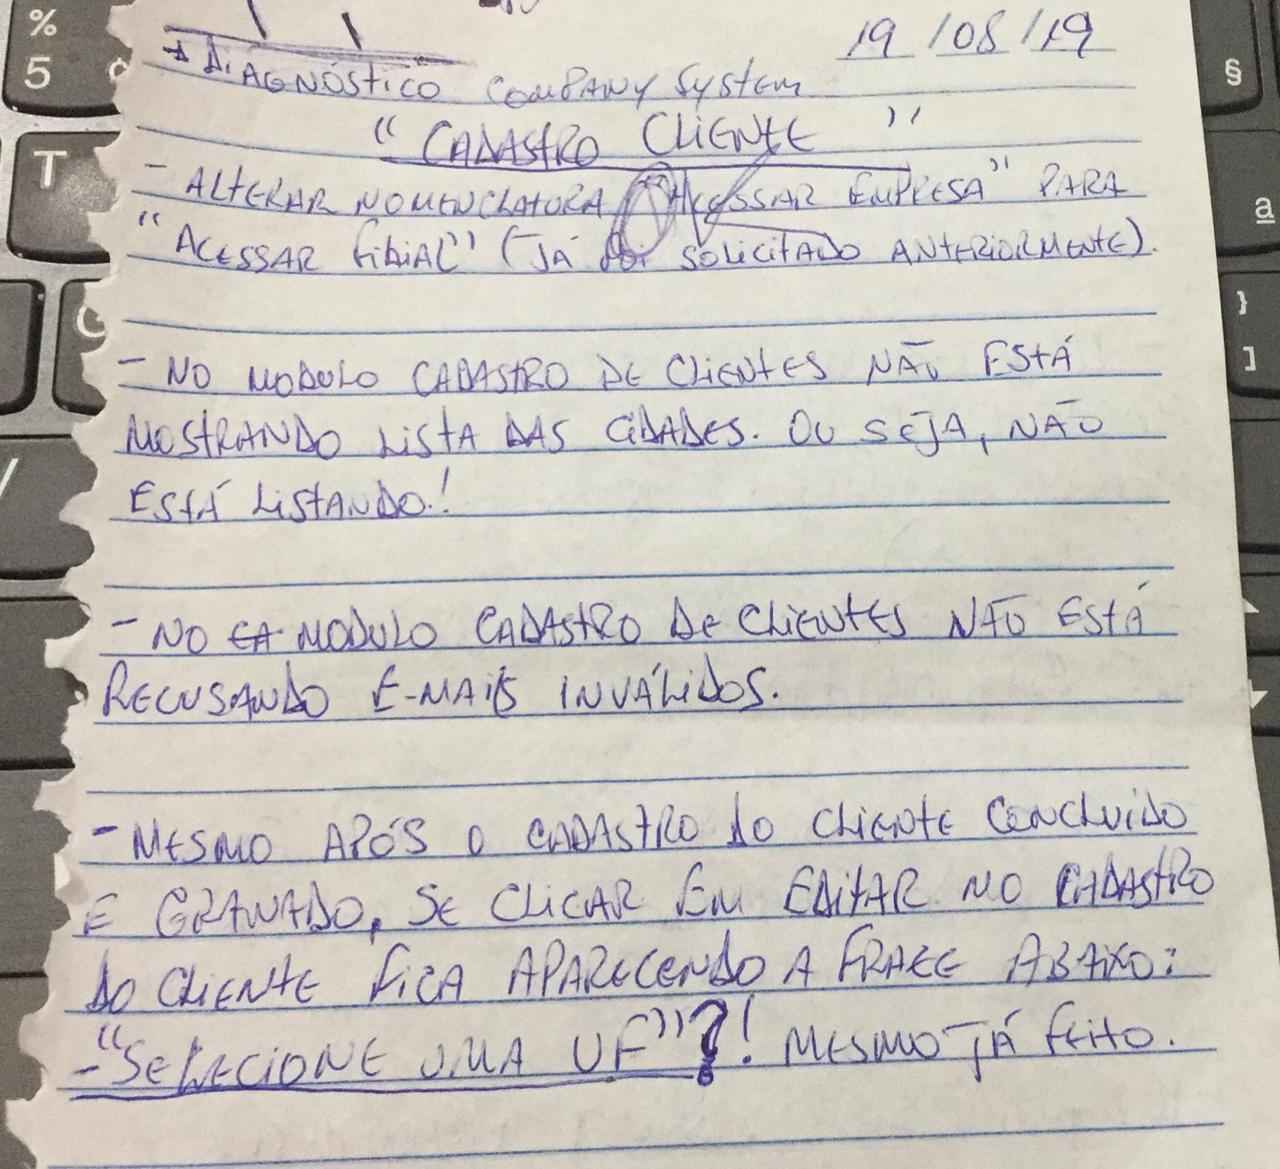 19/08/19
→ DIAGNÓSTICO COMPANY SYSTEM
“CADASTRO CLIENTE”
- ALTERAR NOMENCLATURA “ACESSAR EMPRESA” PARA
“ACESSAR FILIAL” (JÁ FOI SOLICITADO ANTERIORMENTE).
- NO MODULO CADASTRO DE CLIENTES NÃO ESTÁ
MOSTRANDO LISTA DAS CIDADES. OU SEJA, NÃO
ESTÁ LISTANDO!
- NO MODULO CADASTRO DE CLIENTES NÃO ESTÁ
RECUSANDO E-MAILS INVÁLIDOS.
- MESMO APÓS O CADASTRO DO CLIENTE CONCLUIDO
E GRAVADO, SE CLICAR EM EDITAR NO CADASTRO
DO CLIENTE FICA APARECENDO A FRASE ABAIXO:
- “SELECIONE UMA UF”?! MESMO JÁ FEITO.
%
5
T
§
a
}
]
/